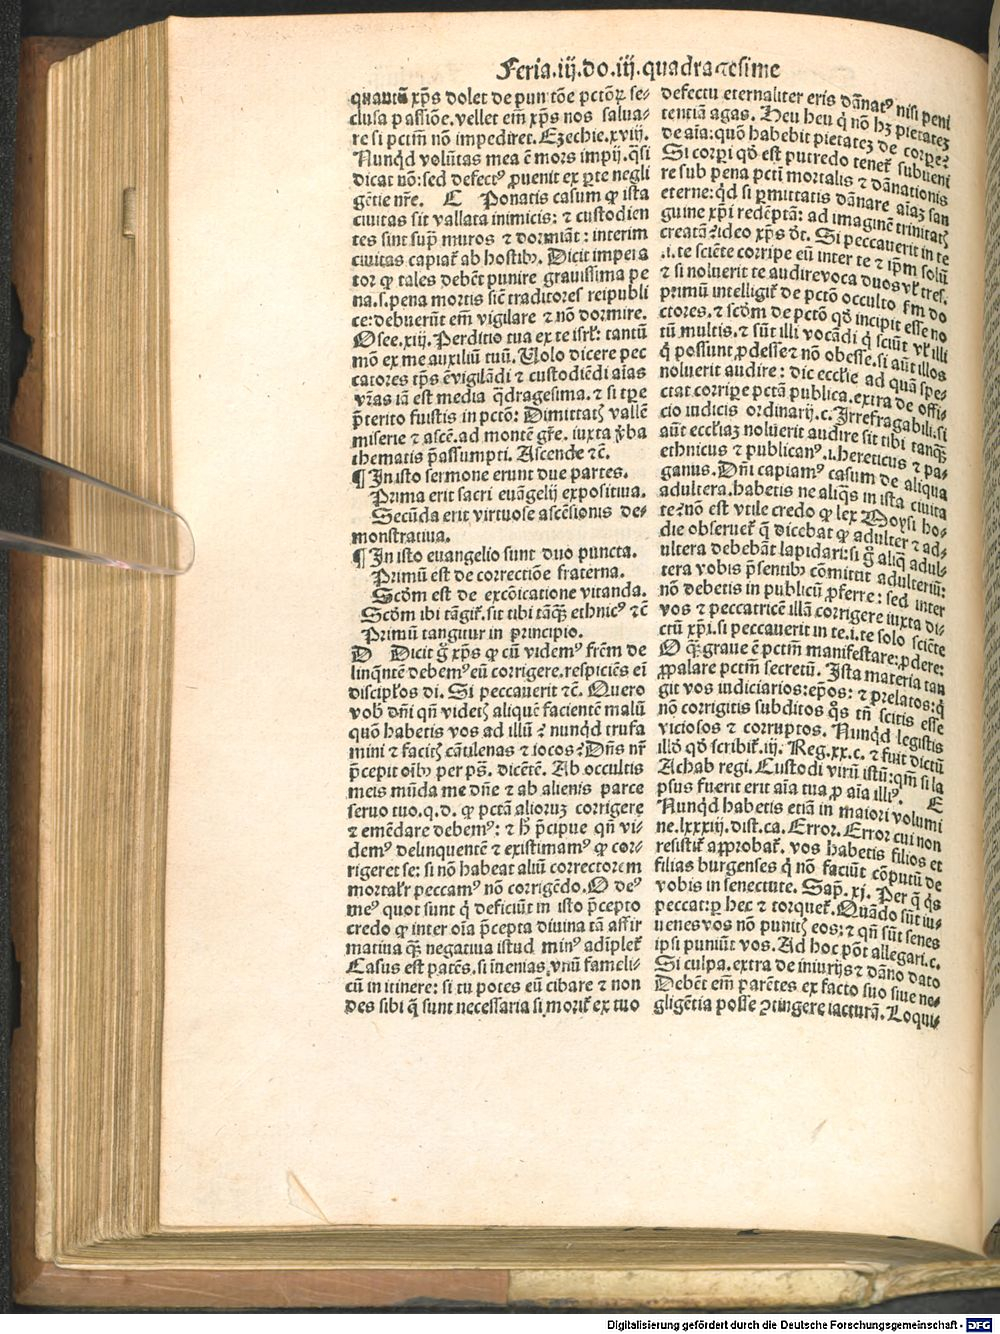 Feria.iij.do.iij.quadragesime
quantū xp̄s dolet de punitōe pctōꝝ se-
clusa passiōe. vellet em̄ xp̄s nos salua-
re si pctm̄ nō impediret. Ezechie.xviij.
Nunqd volūtas mea ē mors impij. q̄si
dicat nō: sed defectꝰ ꝓuenit ex ꝑte negli
gētie nr̄e. C Ponatis casum ꝙ ista
ciuitas sit vallata inimicis: ⁊ custodien
tes sint sup̄ muros ⁊ dormiāt: interim
ciuitas capiat᷑ ab hostibꝫ. Dicit impera
tor ꝙ tales debēt punire grauissima pe
na.s.pena mortis sic̄ traditores reipubli
ce: debuerūt em̄ vigilare ⁊ nō dormire.
Osee.xiij. Perditio tua ex te isrl̄: tantū
mō ex me auxiliū tuū. Uolo dicere pec
catores tp̄s ē vigilādi ⁊ custodiēdi aīas
vr̄as iā est media q̄dragesima. ⁊ si tꝑe
p̄terito fuistis in pctō: Dimittatꝭ vallē
miserie ⁊ ascē.ad montē gr̄e. iuxta v̄ba
thematis p̄assumpti. Ascende ⁊c̄.
¶ In isto sermone erunt due partes.
Prima erit sacri euāgelij expositiua.
Secūda erit virtuose ascēsionis de-
monstratiua.
¶ In isto euangelio sunt duo puncta.
Primū est de correctiōe fraterna.
Scd̄m est de excōicatione vitanda.
Scd̄m ibi tāgit᷑. sit tibi tāq̄ꝫ ethnicꝰ ⁊c̄
Primū tangitur in principio.
D Dicit g̊ xp̄s ꝙ cū videmꝰ fr̄em de
linq̄ntē debemꝰ eū corrigere. respiciēs ei
discipl̄os di. Si peccauerit ⁊c̄. Quero
vob̄ dn̄i qn̄ videtꝭ aliquē facientē malū
quō habetis vos ad illū? nunqd trufa
mini ⁊ facitꝭ cātilenas ⁊ iocos? Dn̄s nr̄
p̄cepit oībꝫ per ps̄. dicētē. Ab occultis
meis mūda me dn̄e ⁊ ab alienis parce
seruo tuo.q.d. ꝙ pctā alioruꝫ corrigere
⁊ emēdare debemꝰ: ⁊ h̄ p̄cipue qn̄ vi-
demꝰ delinquentē ⁊ existimamꝰ ꝙ cor-
rigeret se: si nō habeat aliū correctorem
mortalr̄ peccamꝰ nō corrigēdo. O de-
meꝰ quot sunt q̇ deficiūt in isto p̄cepto
credo ꝙ inter oīa p̄cepta diuina tā affir
matiua q̄ꝫ negatiua istud minꝰ adīplet᷑
Casus est patēs. si īuenias vnū fameli-
cū in itinere: si tu potes eū cibare ⁊ non
des sibi q̄ sunt necessaria si morit᷑ ex tuo
defectu eternaliter eris dānatꝰ nisi peni
tentiā agas. Heu heu q̇ nō hꝫ pietatez
de aīa: quō habebit pietatez de corꝑe?
Si corꝑi qd̄ est putredo tenet᷑ subueni
re sub pena pctī mortalis ⁊ dānationis
eterne: qd si ꝑmittatis dānare aīaꝫ san
guine xp̄i redēptā: ad imaginē trinitatꝭ
creatā? ideo xp̄s dt̄. Si peccauerit in te
.i. te sciēte corripe eū inter te ⁊ ip̄m solū
⁊ si noluerit te audire voca duos vl̄ tres.
primū intelligit᷑ de pctō occulto fm̄ do
ctores. ⁊ scd̄m de pctō qd̄ incipit esse no
tū multis. ⁊ sūt illi vocādi q̇ sciūt vl̄ illi
q̇ possunt ꝓdesse ⁊ nō obesse. si aūt illos
noluerit audire: dic eccl̄ie ad quā spe-
ctat corriꝑe pctā publica. extra de offi-
cio iudicis ordinarij.c. Irrefragabili. si
aūt eccl̄iaꝫ noluerit audire sit tibi tanq̄ꝫ
ethnicus ⁊ publicanꝰ.i. hereticus ⁊ pa-
ganus. Dn̄i capiamꝰ casum de aliqua
adultera. habetis ne aliq̄s in ista ciuita
te? nō est vtile credo ꝙ lex Moysi ho-
die obseruet᷑ q̄ dicebat ꝙ adulter ⁊ ad-
ultera debebāt lapidari: si g̊ aliq̄ adul-
tera vobis p̄sentibꝫ cōmittit adulteriū:
nō debetis in publicū ꝓferre: sed inter
vos ⁊ peccatricē illā corrigere iuxta di-
ctū xp̄i. si peccauerit in te.i. te solo sciēte
O q̄ꝫ graue ē pctm̄ manifestare: ꝓdere:
ꝓpalare pctm̄ secretū. Ista materia tan
git vos iudiciarios: ep̄os: ⁊ p̄relatos: q̇
nō corrigitis subditos q̊s tn̄ scitis esse
viciosos ⁊ corruptos. Nunqd legistis
illd̄ qd̄ scribit᷑.iij. Reg.xx.c. ⁊ fuit dictū
Achab regi. Custodi virū istū: qm̄ si la
psus fuerit erit aīa tua ꝓ aīa illiꝰ. E
Nunqd habetis etiā in maiori volumi
ne.lxxxiij.dist.ca. Error. Error cui non
resistit᷑ approbat᷑. vos habetis filios et
filias burgenses q̇ nō faciūt cōputū de
vobis in senectute. Sap̄.xj. Per q̄ q̇s
peccat: ꝑ hec ⁊ torquet᷑. Quādo sūt iu-
uenes vos nō punitꝭ eos: ⁊ qn̄ sūt senes
ipsi puniūt vos. Ad hoc pōt allegari.c.
Si culpa. extra de iniurijs ⁊ dāno dato
Debēt em̄ parētes ex facto suo siue ne-
gligētia posse ꝯtingere iacturā. Loqui-
Digitalisierung gefördert durch die Deutsche Forschungsgemeinschaft - DFG